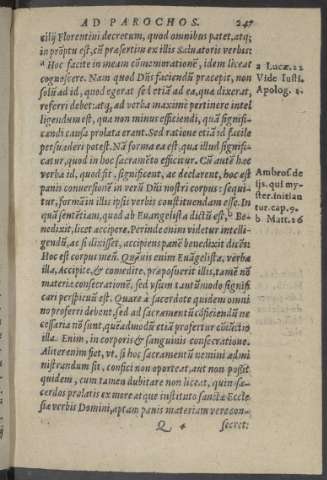 AD PAROCHOS. 247
cilij Florentini decretum, quod omnibus patet, atq;
in prõptu est, cũ præsertim ex illis Saluatoris verbis:
a Hoc facite in meam cõmemorationẽ, idem liceat
cognoscere. Nam quod Dñs faciendũ præcepit, non
solũ ad id, quod egerat sed etiã ad ea, quæ dixerat,
referri debet: atq, ad verba maximè pertinere intel
ligendum est, quæ non minus efficiendi, quã signifi-
candi causa prolata erant. Sed ratione etiã id facilè
persuaderi potest. Nã forma ea est, qua illud signifi-
catur, quod in hoc sacramẽto efficitur. Cũ autẽ hæc
verba id, quod fit, significent, ac declarent, hoc est
panis conuersionẽ in verũ Dñi nostri corpus: sequi-
tur, formã in illis ipsis verbis constituendam esse. In
quã sentẽtiam, quod ab Euangelista dictũ est, b Be-
nedixit, licet accipere. Perinde enim videtur intelli-
gendũ, ac si dixisset, accipiens panẽ benedixit dicẽs:
Hoc est corpus meũ. Quãuis enim Euãgelistæ, verba
illa, Accipite, & comedite, præposuerit illis, tamẽ nõ
materiæ consecrationẽ, sed vsum tantũmodo signifi
cari perspicuũ est. Quare à sacerdote quidem omni
no proferri debent, sed ad sacramentũ cõficiendũ ne
cessaria nõ sunt, quẽadmodũ etiã profertur cõiũctio
illa. Enim, in corporis & sanguinis consecratione.
Aliter enim fiet, vt, si hoc sacramentũ nemini admi
nistrandum sit, confici non oporteat, aut non possit
quidem, cum tamen dubitare non liceat, quin sa-
cerdos prolatis ex more atque instituto sanctæ Eccle
siæ verbis Domini, aptam panis materiam verè con-
Q secret:
a Lucæ. 22
Vide Iusti.
Apolog. 2.
Ambros. de
ijs, qui my-
ster. initian
tur. cap. 9.
b Matt. 26